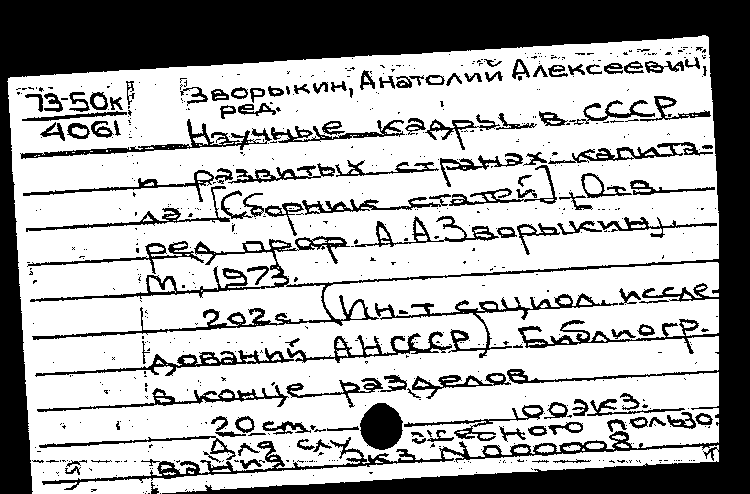 Зворыкин, Анатолий Алексеевич,
ред.
73-50к
4061
Научные кадры в СССР
и развитых странах капита-
ла. [Сборник статей] [Отв.
ред. проф. А.А.Зворыкин].
М., 1973.
202с. (Ин-т социол. иссле-
дований АНСССР). Библиогр.
в конце разделов.
20 см. 100экз.
Для служебного пользо-
вания. Экз N000008.